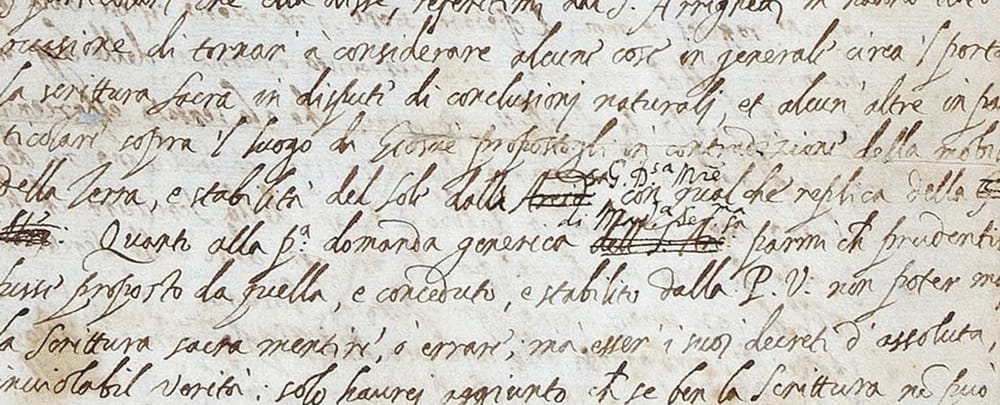 particolari che ella disse, referitimi dal S. Arrighetti
occasione di tornar' à considerare alcune cose in generale circa 'l port
la scrittura sacra in dispute di conclusioni naturali, et alcun' altre in pa
ticolare sopra 'l luogo di Giosuè propostogli in contradizione della mobi
della Terra, e stabilità del Sole dalla G. D.sa M.re con qualche replica della
di Mad.a Ser.ma
Quanto alla p.a domanda generica parmi ch prudenti
fusse proposto da quella, e conceduto, e stabilito dalla P. V. non poter m
la Scrittura sacra mentire, ò errare, mà esser' i suoi decreti d' assoluta,
inviolabil verità: solo haurei aggiunto ch se ben la Scrittura nō può